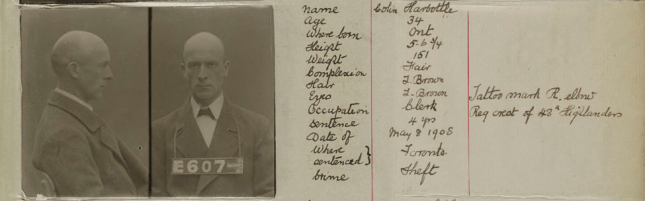 Name Colin Harbottle
Age 34
Where born Ont
Height 5-6 3/4
Weight 151
Complexion Fair
Hair L Brown
Eyes L. Brown
Occupation Clerk
Sentence 4 yrs
Date of May 8 1908
Where sentenced } Toronto
Crime Theft
Tattoo mark R. elbow
Reg crest of 48th Highlanders
E607